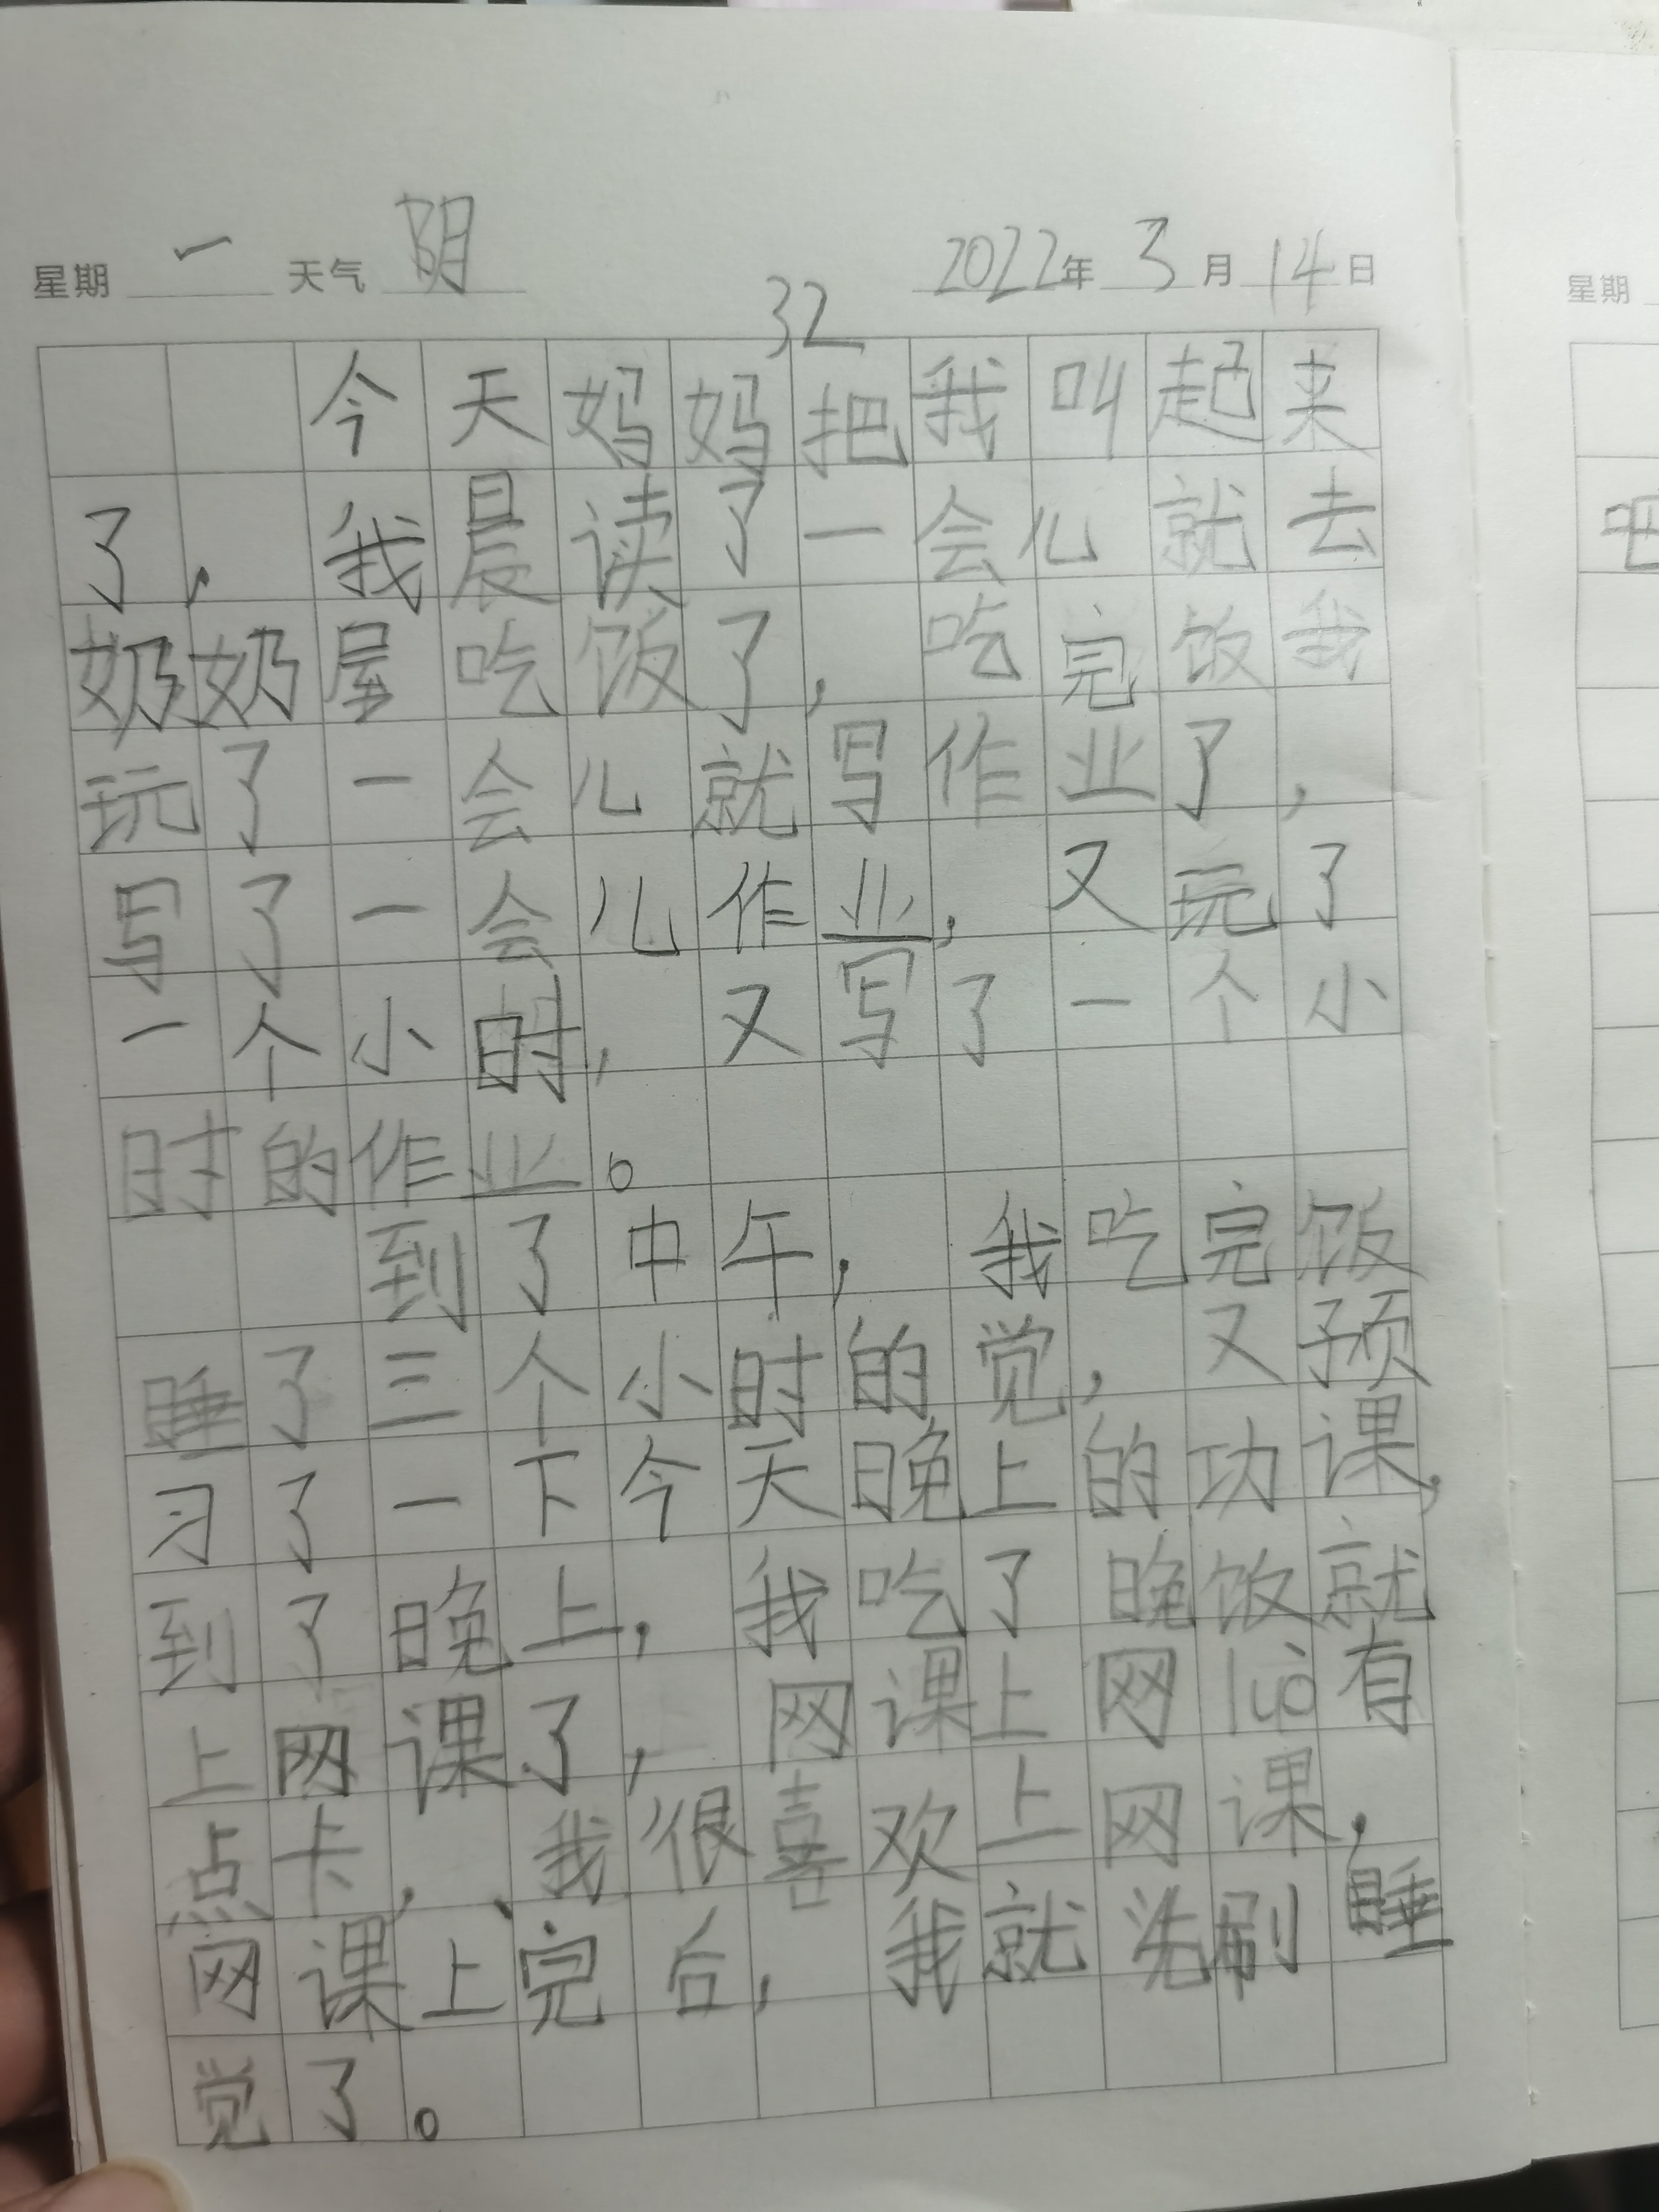 星期 一 天气 阴 2022年 3 月 14 日
32
今天妈妈把我叫起来
了，我晨读了一会儿就去
奶奶屋吃饭了，吃完饭我
玩了一会儿就写作业了，
写了一会儿作业，又玩了
一个小时，又写了一个小
时的作业。
到了中午，我吃完饭
睡了三个小时的觉，又预
习了一下今天晚上的功课，
到了晚上，我吃了晚饭就
上网课了，网课上网luò有
点卡，我很喜欢上网课，
网课上完后，我就洗刷睡
觉了。
星期
吧